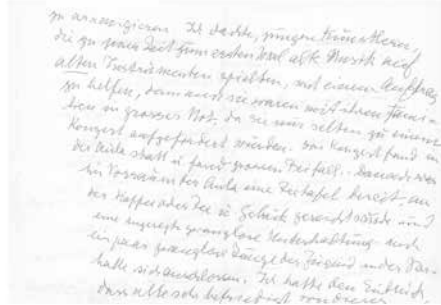 zu arrangieren. Ich dachte, jungen Künstlern,
die zu jener Zeit zum ersten Mal alte Musik auf
alten Instrumenten spielten, mit einem Auftrag
zu helfen, denn auch sie waren mit ihren
in grosser Not, da sie nur selten zu einem
Konzert aufgefordert wurden. Das Konzert fand in
der Aula statt u. fand grossen Beifall. Danach war
im Vorraum der Aula eine Teetafel bereit, an
der Kaffee oder Tee u. Gebäck gereicht wurde und
eine angeregte zwanglose Unterhaltung und
ein paar zwanglose Tänze der Jugend
hatte sich anschlossen. Ich hatte den Eindruck
dass alle sehr befriedigt von dieser